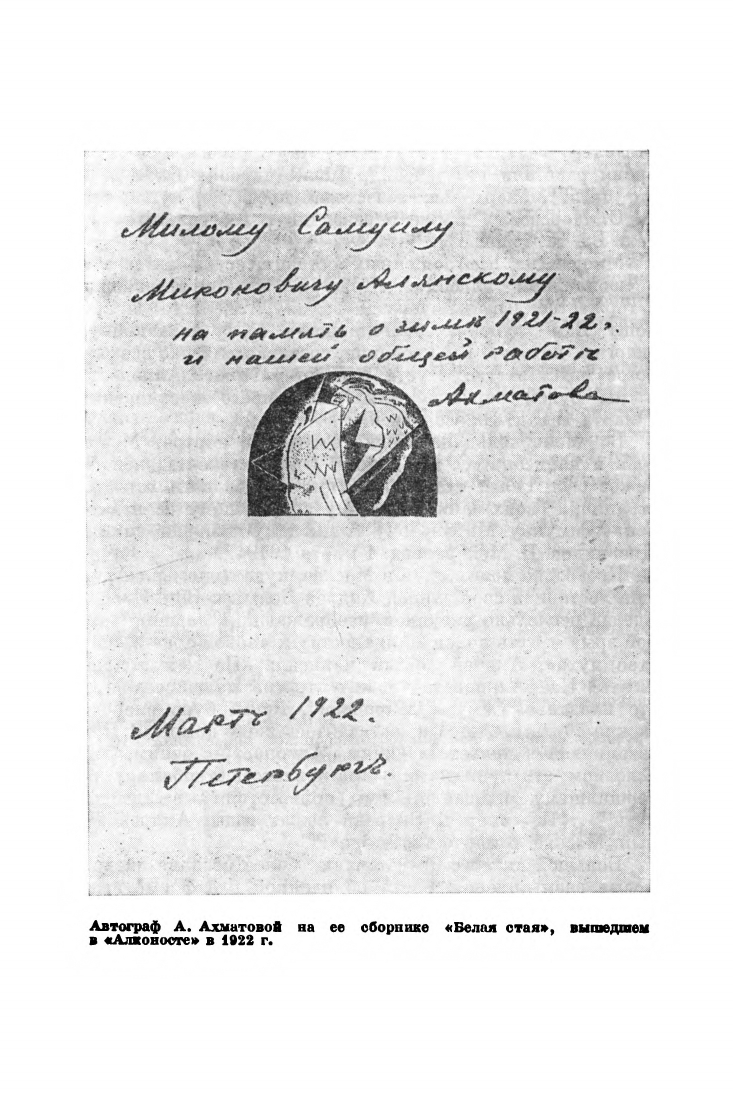 Милому Самуилу
Мироновичу Алянскому
на память о зимѣ 1921-22 г.
и нашей общей работѣ
Ахматова
Мартъ 1922.
Петербургъ.
Автограф А. Ахматовой на ее сборнике «Белая стая», вышедшем
в «Алконосте» в 1922 г.